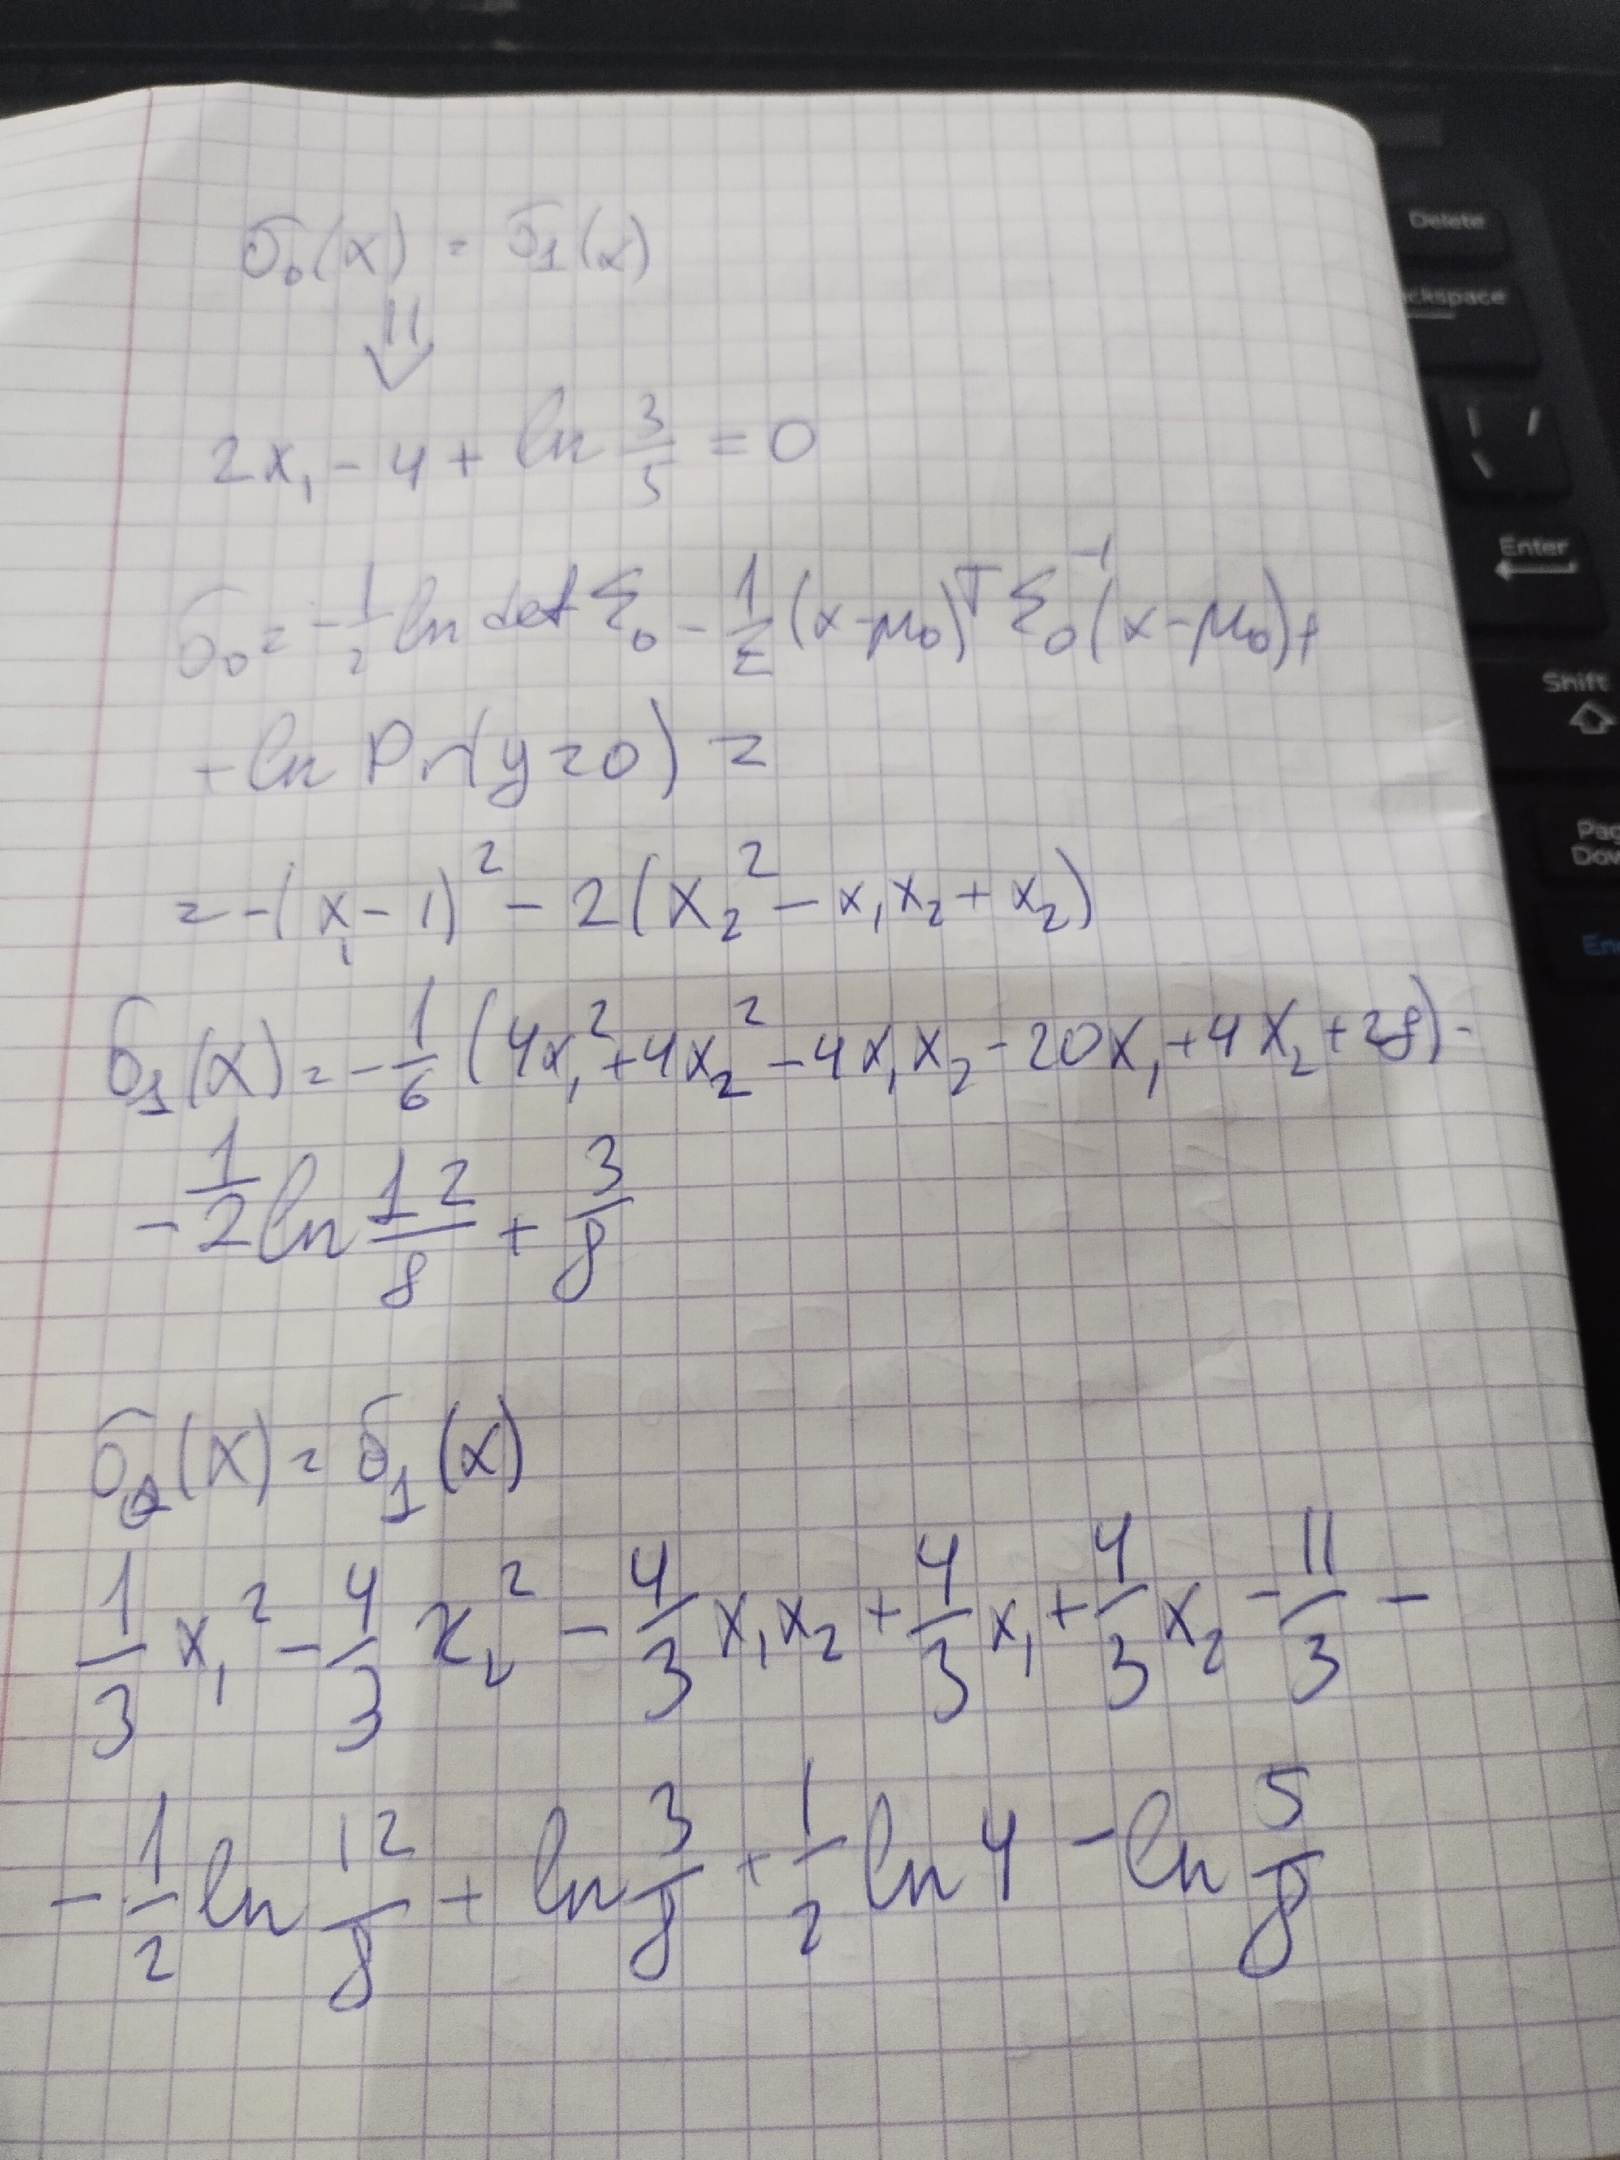 σ₀(x) = σ₁(x)
⇓
2x₁ - 4 + ln 3/5 = 0
σ₀ = -1/2 ln det Σ₀ - 1/2 (x-μ₀)ᵀ Σ₀⁻¹ (x-μ₀) +
+ ln Pr(y=0) =
= -(x₁-1)² - 2(x₂² - x₁x₂ + x₂)
σ₁(x) = -1/6 (4x₁² + 4x₂² - 4x₁x₂ - 20x₁ + 4x₂ + 28) -
- 1/2 ln 12/8 + 3/8
σ₀(x) = σ₁(x)
1/3 x₁² - 4/3 x₂² - 4/3 x₁x₂ + 4/3 x₁ + 4/3 x₂ - 11/3 -
- 1/2 ln 12/8 + ln 3/8 + 1/2 ln 4 - ln 5/8
Delete
ckspace
Enter
Shift